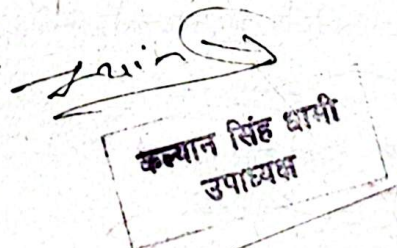 कल्यान सिंह धामी
उपाध्यक्ष